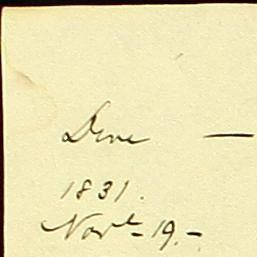 Dove —
1831.
Novr - 19. -